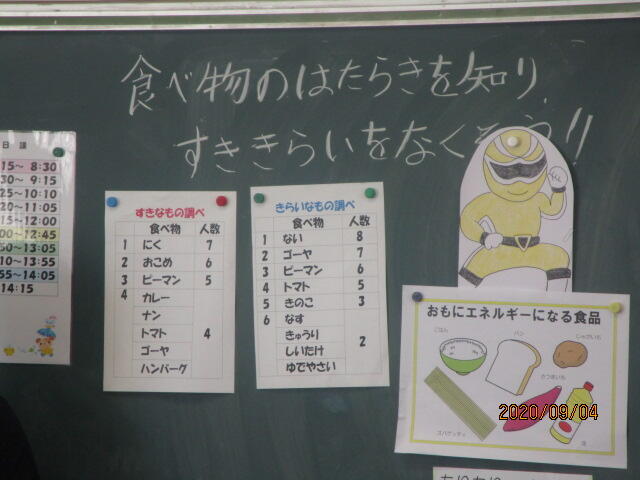 食べ物のはたらきを知り、
すききらいをなくそう!!
日課
15～ 8:30
30～ 9:15
25～10:10
20～11:05
15～12:00
00～12:45
50～13:05
10～13:55
55～14:05
14:15
すきなもの調べ
食べ物 人数
1 にく 7
2 おこめ 6
3 ピーマン 5
4 カレー
ナン
トマト 4
ゴーヤ
ハンバーグ
きらいなもの調べ
食べ物 人数
1 ない 8
2 ゴーヤ 7
3 ピーマン 6
4 トマト 5
5 きのこ 3
6 なす
きゅうり 2
しいたけ
ゆでやさい
おもにエネルギーになる食品
ごはん
パン
じゃがいも
さつまいも
スパゲッティ
油
2020/09/04